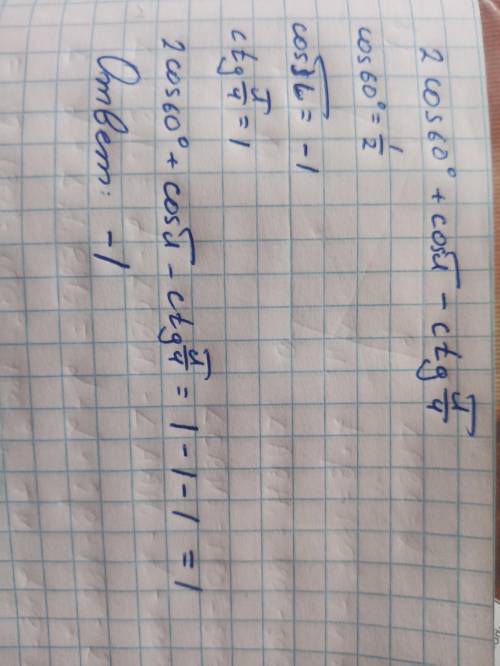 2 cos60° + cosπ - ctg π/4
cos60° = 1/2
cosπ = -1
ctg π/4 = 1
2cos60° + cosπ - ctg π/4 = 1 - 1 - 1 = 1
Ответ: -1